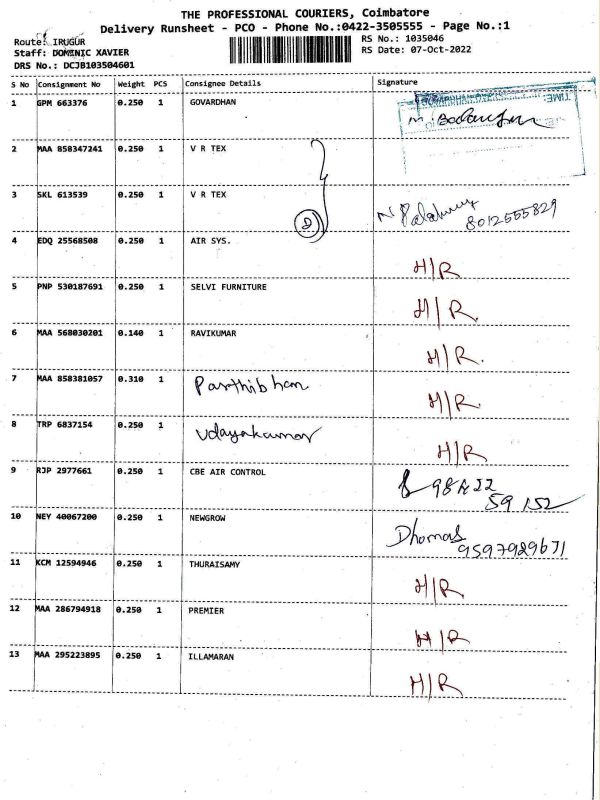 THE PROFESSIONAL COURIERS, Coimbatore
Delivery Runsheet - PCO - Phone No.:0422-3505555 - Page No.:1
Route: IRUGUR
RS No.: 1035046
Staff: DOMINIC XAVIER
RS Date: 07-Oct-2022
DRS No.: DCJB103504601
S No Consignment No Weight PCS Consignee Details Signature
1 GPM 663376 0.250 1 GOVARDHAN
TIME:
2 MAA 858347241 0.250 1 V R TEX
3 SKL 613539 0.250 1 V R TEX
2
8012555829
4 EDQ 25568508 0.250 1 AIR SYS.
H/R
5 PNP 530187691 0.250 1 SELVI FURNITURE
H/R
6 MAA 568030201 0.140 1 RAVIKUMAR
H/R.
7 MAA 858381057 0.310 1 Parthibhan
H/R
8 TRP 6837154 0.250 1 Udayakumar
H/R
9 RJP 2977661 0.250 1 CBE AIR CONTROL
59 152
10 NEY 40067200 0.250 1 NEWGROW
Dhomas
9597929671
11 KCM 12594946 0.250 1 THURAISAMY
H/R
12 MAA 286794918 0.250 1 PREMIER
H/R
13 MAA 295223895 0.250 1 ILLAMARAN
H/R